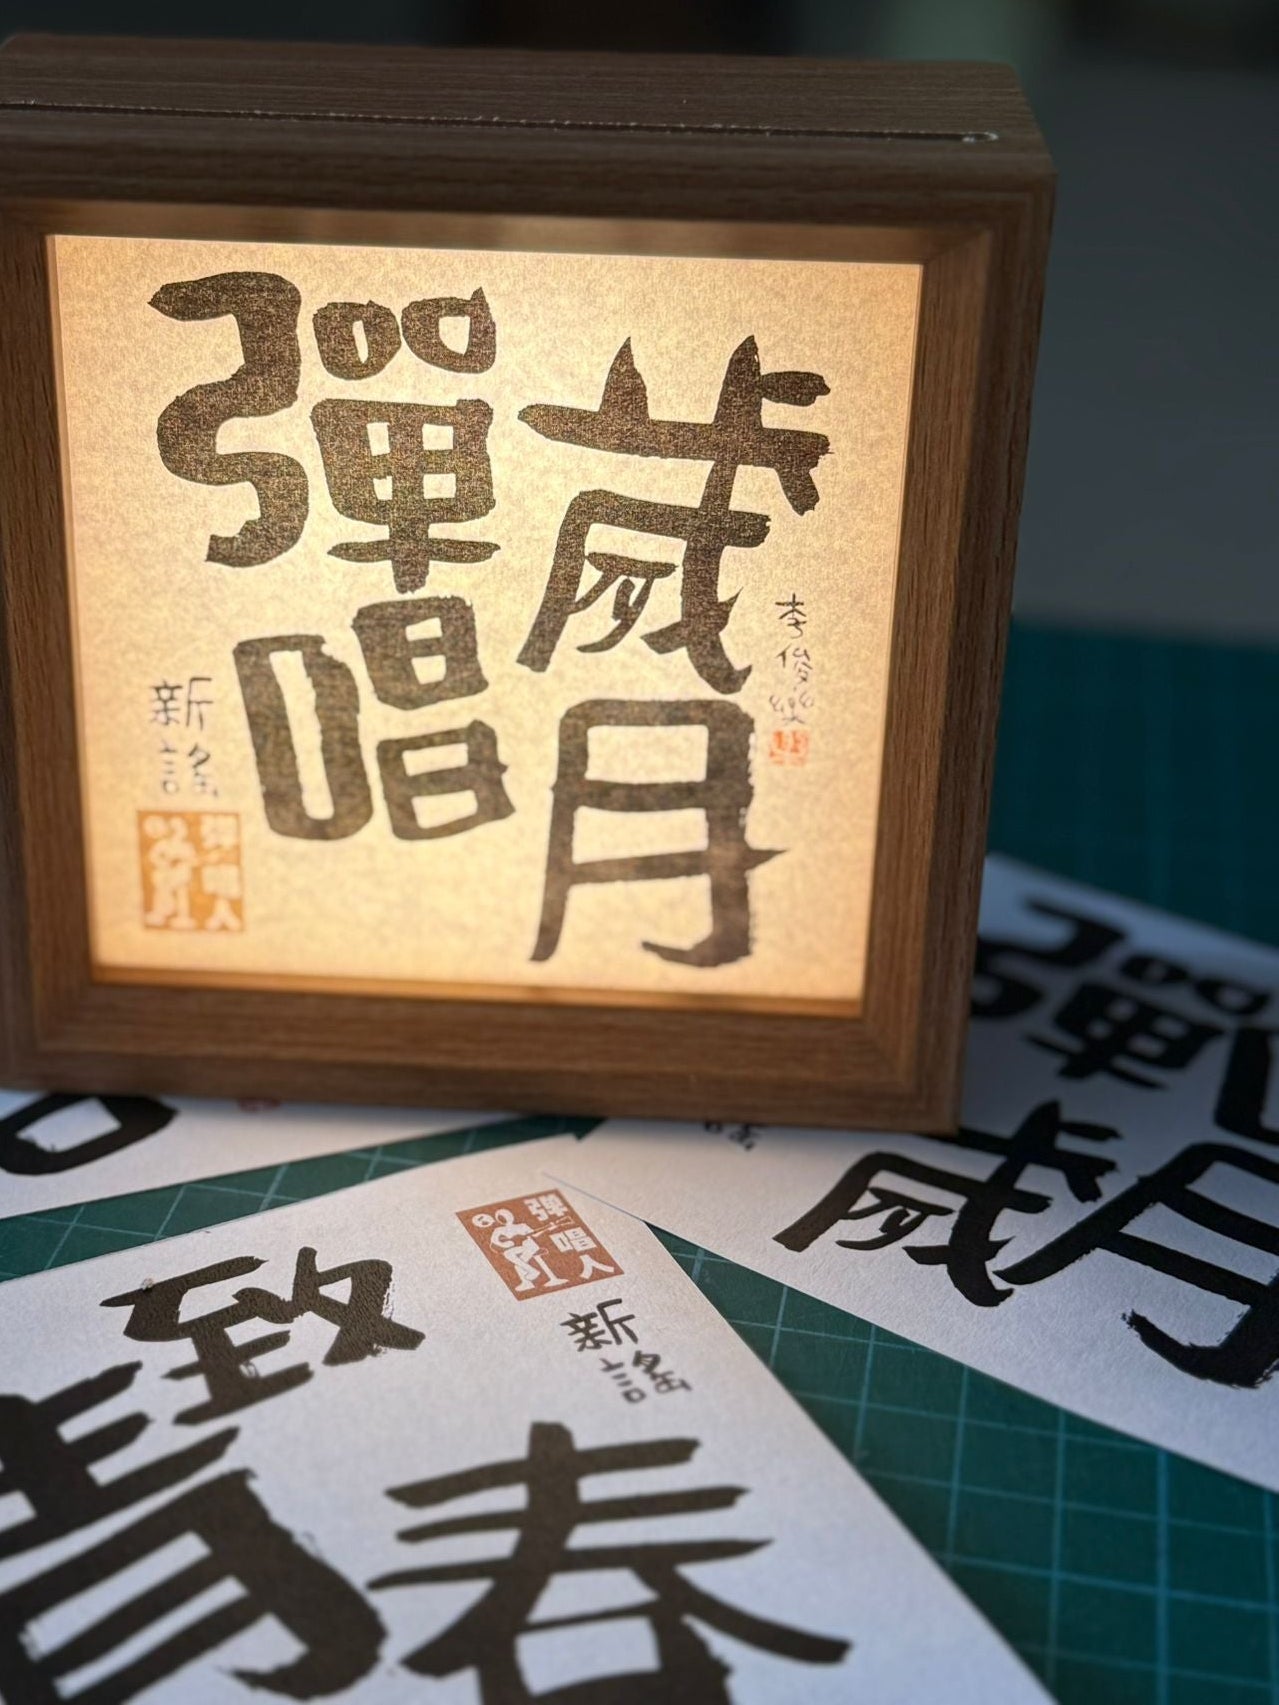 歲月
彈唱
李俊樂
新謠
弹唱人
致
青春
弹唱人
新謠
彈
歲月